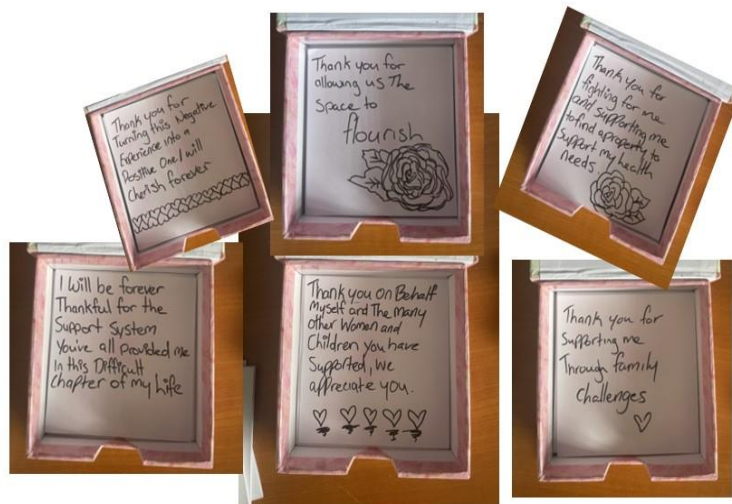 Thank you for
Turning this Negative
Experience into a
Positive One I will
Cherish forever
Thank you for
allowing us The
Space to
flourish
Thank you for
fighting for me
and supporting me
to find a property to
Support my health
needs.
I Will be forever
Thankful for the
Support System
You've all provided me
In this Difficult
Chapter of my Life
Thank you On Behalf
Myself and The many
Other Women and
Children you have
Supported, We
appreciate you.
Thank you for
Supporting me
Through family
Challenges